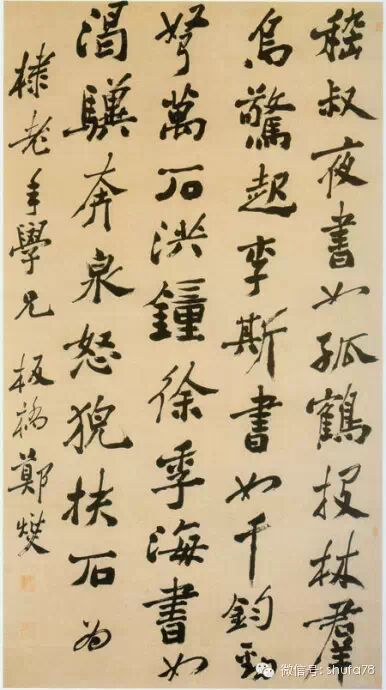 嵇叔夜書如孤鶴投林羣
烏驚起李斯書如千鈞勁
弩萬石洪鐘徐季海書如
渴驥奔泉怒猊抉石為
棣老年學兄板橋鄭燮
微信号: shufa78